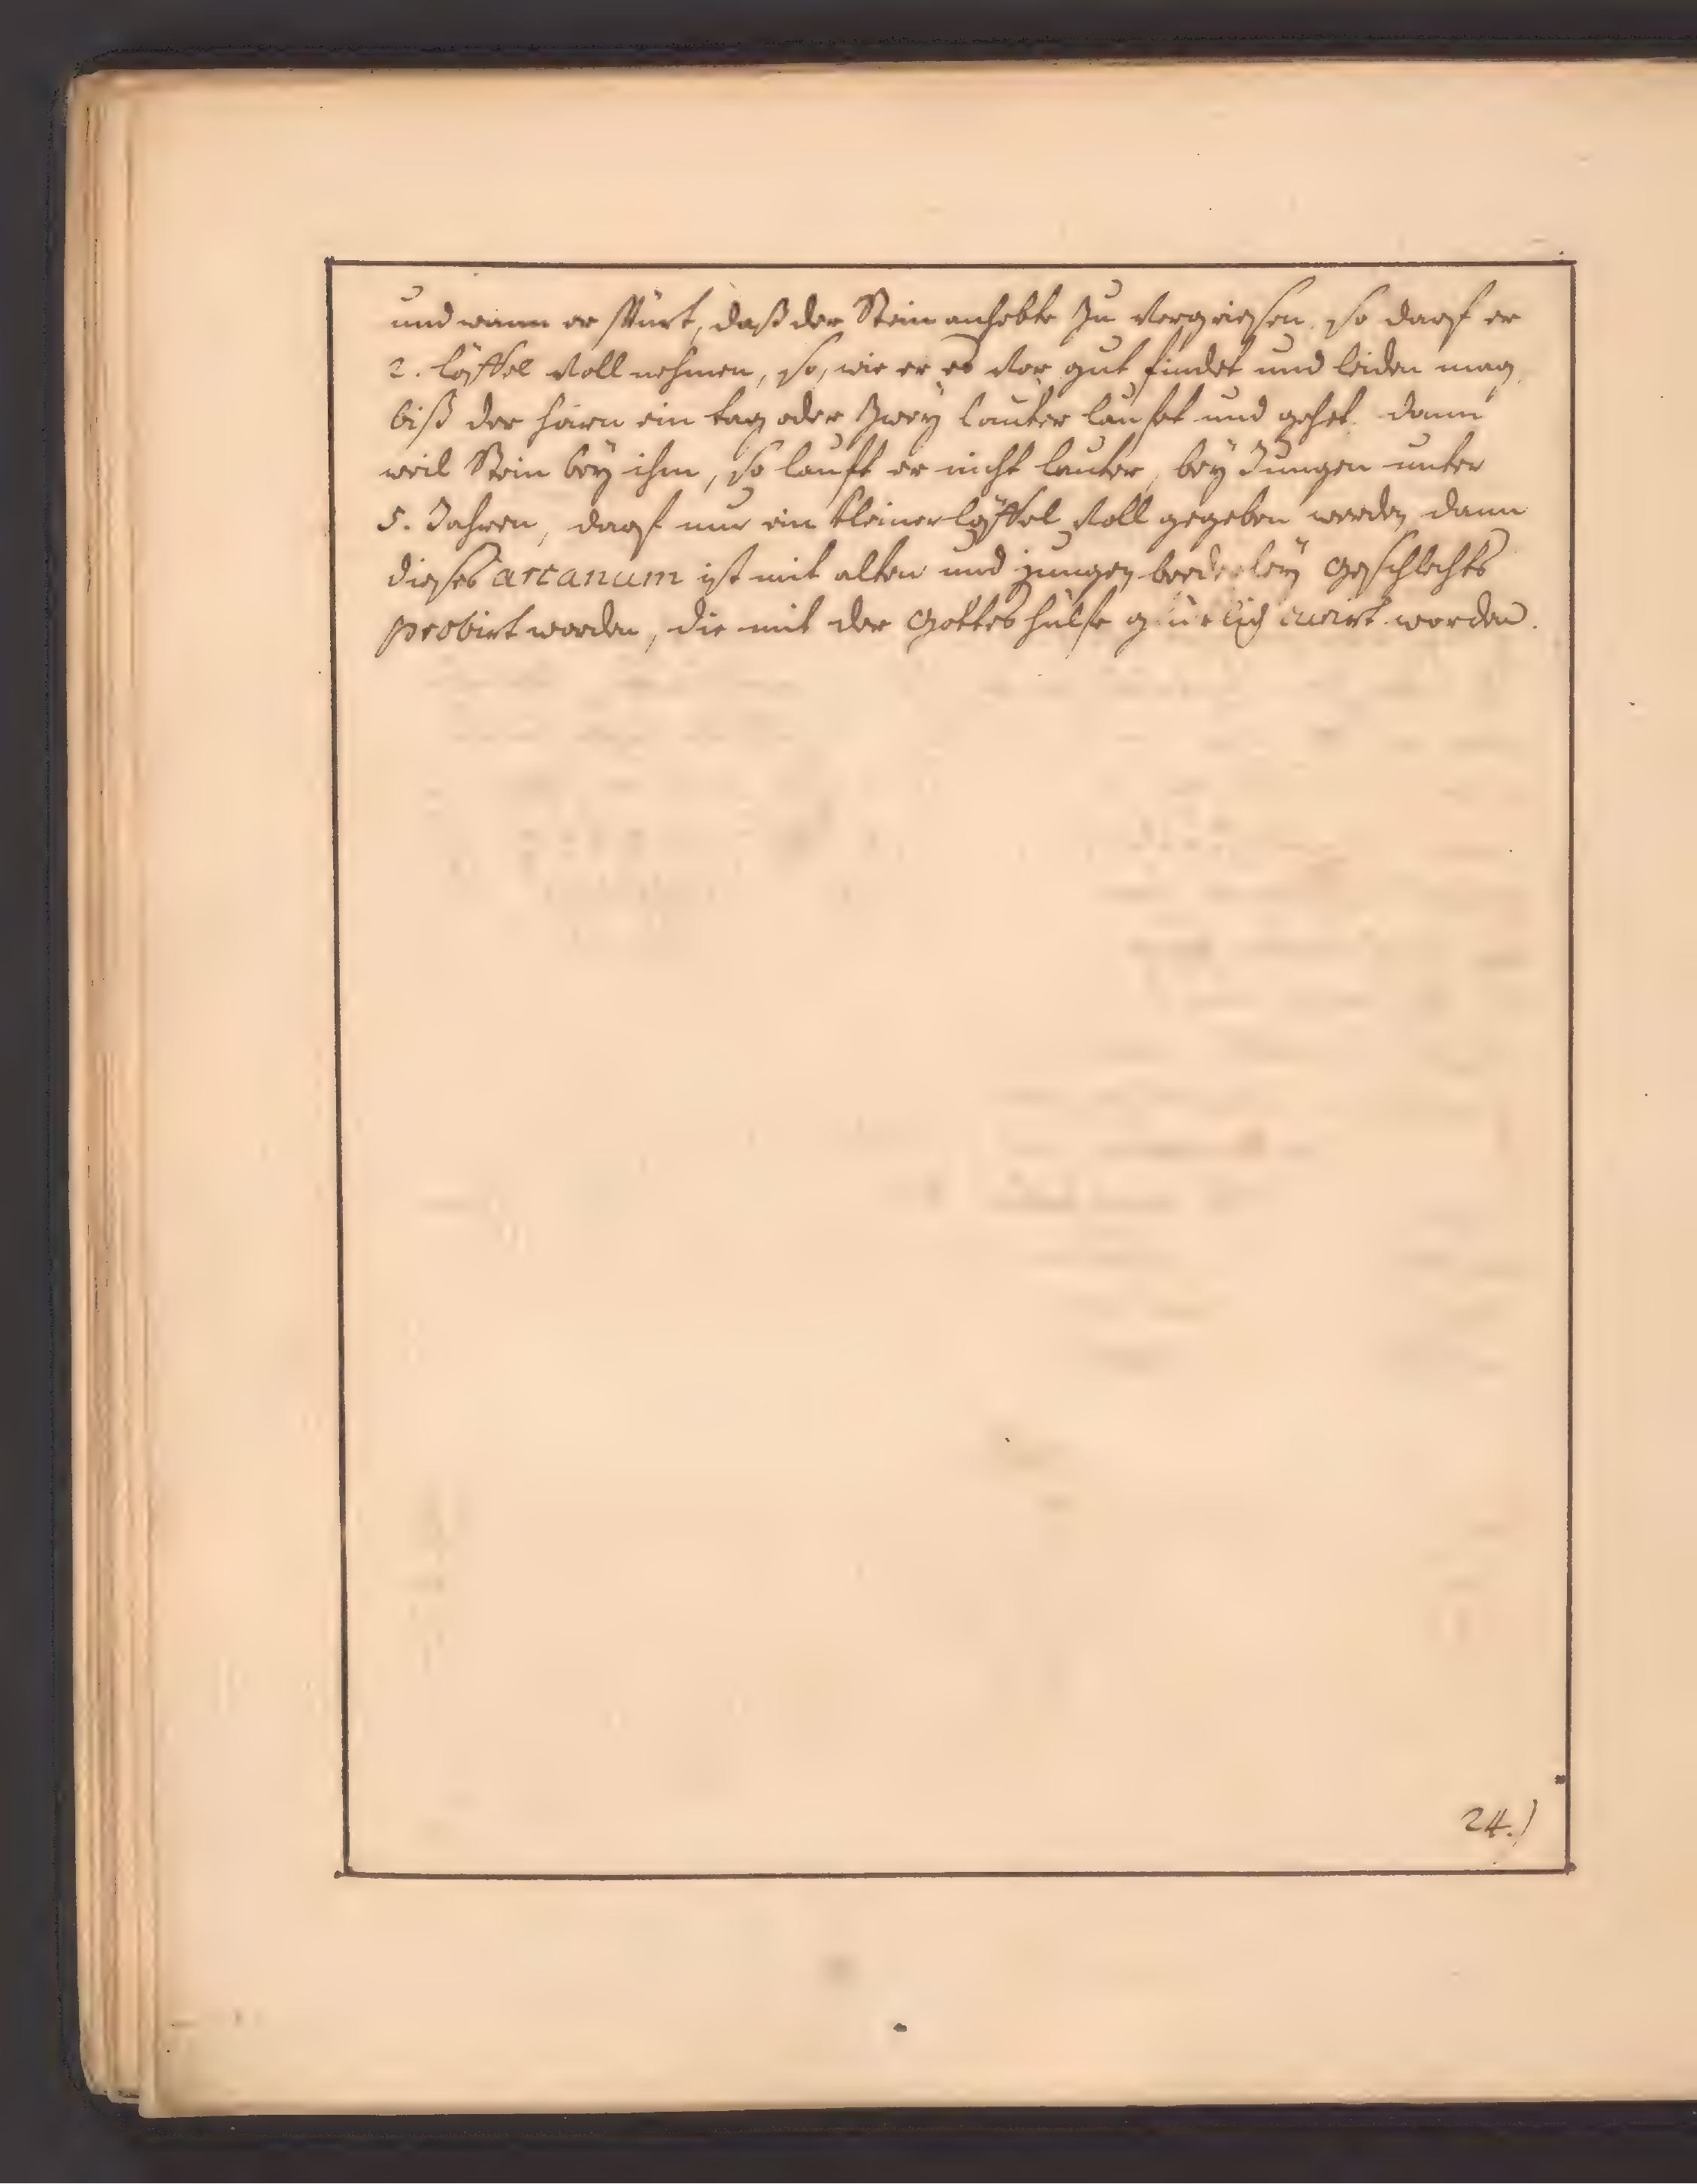 und wann er spürt, daß der Stein anhebte zu vergriesen, so darf er
2. löffel voll nehmen, so, wie er es vor gut findet und leiden mag,
biß der harn ein tag oder zweÿ lauter lauft und gehet. dann
weil Stein beÿ ihm, so lauft er nicht lauter, beÿ Jungen unter
5. Jahren, darf nur ein kleiner löffel voll gegeben werden, dann
dieses arcanum ist mit alten und jungen beederleÿ geschlechts
probirt worden, die mit der Gottes hülfe glücklich curirt worden.
24.)